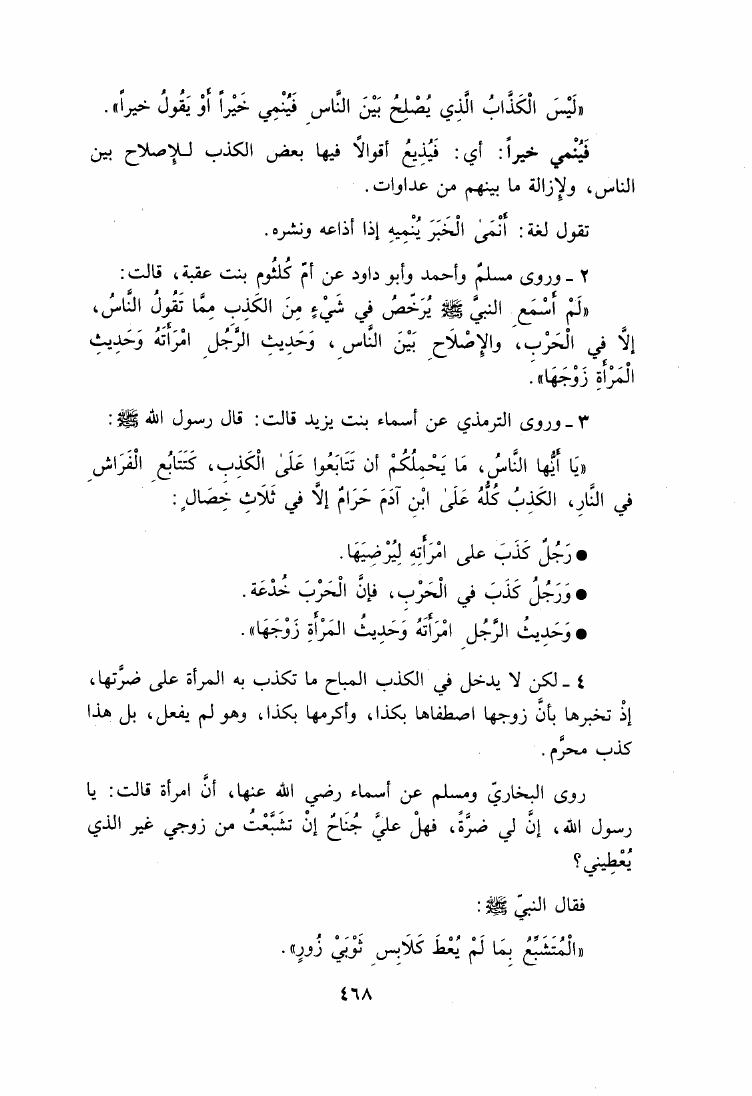 «لَيْسَ الْكَذَّابُ الَّذِي يُصْلِحُ بَيْنَ النَّاسِ فَيُنْمِي خَيْراً أَوْ يَقُولُ خيراً».
فَيُنْمي خيراً: أي: فَيُذِيعُ أقوالًا فيها بعض الكذب لـلإصلاح بين
الناس، ولإزالة ما بينهم من عداوات.
تقول لغة: أَنْمَىٰ الْخَبَرَ يُنْمِيهِ إذا أذاعه ونشره.
٢ - وروى مسلمٌ وأحمد وأبو داود عن أمّ كُلثُوم بنت عقبة، قالت:
«لَمْ أَسْمَعِ النبيَّ ﷺ يُرَخِّصُ في شَيْءٍ مِنَ الكَذِبِ مِمَّا تَقُولُ النَّاسُ،
إلَّا في الْحَرْبِ، والإِصْلَاحِ بَيْنَ النَّاسِ، وَحَدِيثِ الرَّجُلِ امْرَأَتَهُ وَحَدِيثِ
الْمَرْأَةِ زَوْجَهَا».
٣ - وروى الترمذي عن أسماء بنت يزيد قالت: قال رسول الله ﷺ:
«يَا أَيُّها النَّاسُ، مَا يَحْمِلُكُمْ أن تَتَابَعُوا عَلَىٰ الْكَذِبِ، كَتَتَابُعِ الْفَرَاشِ
في النَّارِ، الكَذِبُ كُلُّهُ عَلَىٰ ابْنِ آدَمَ حَرَامٌ إلَّا في ثَلَاثِ خِصَالٍ:
● رَجُلٌ كَذَبَ على امْرَأَتِهِ لِيُرْضِيَهَا.
● وَرَجُلُ كَذَبَ في الْحَرْبِ، فإنَّ الْحَرْبَ خُدْعَة.
● وَحَدِيثُ الرَّجُلِ امْرَأَتَهُ وَحَدِيثُ المَرْأَةِ زَوْجَهَا».
٤ - لكن لا يدخل في الكذب المباح ما تكذب به المرأة على ضرَّتها،
إذْ تخبرها بأنَّ زوجها اصطفاها بكذا، وأكرمها بكذا، وهو لم يفعل، بل هذا
كذب محرَّم.
روى البخاريّ ومسلم عن أسماء رضي الله عنها، أنَّ امرأة قالت: يا
رسول الله، إنَّ لي ضرَّةً، فهلْ عليَّ جُنَاحٌ إنْ تشَبَّعْتُ من زوجي غير الذي
يُعْطِيني؟
فقال النبيّ ﷺ:
«الْمُتَشَبِّعُ بِمَا لَمْ يُعْطَ كَلَابِسِ ثَوْبَيْ زُورٍ».
٤٦٨